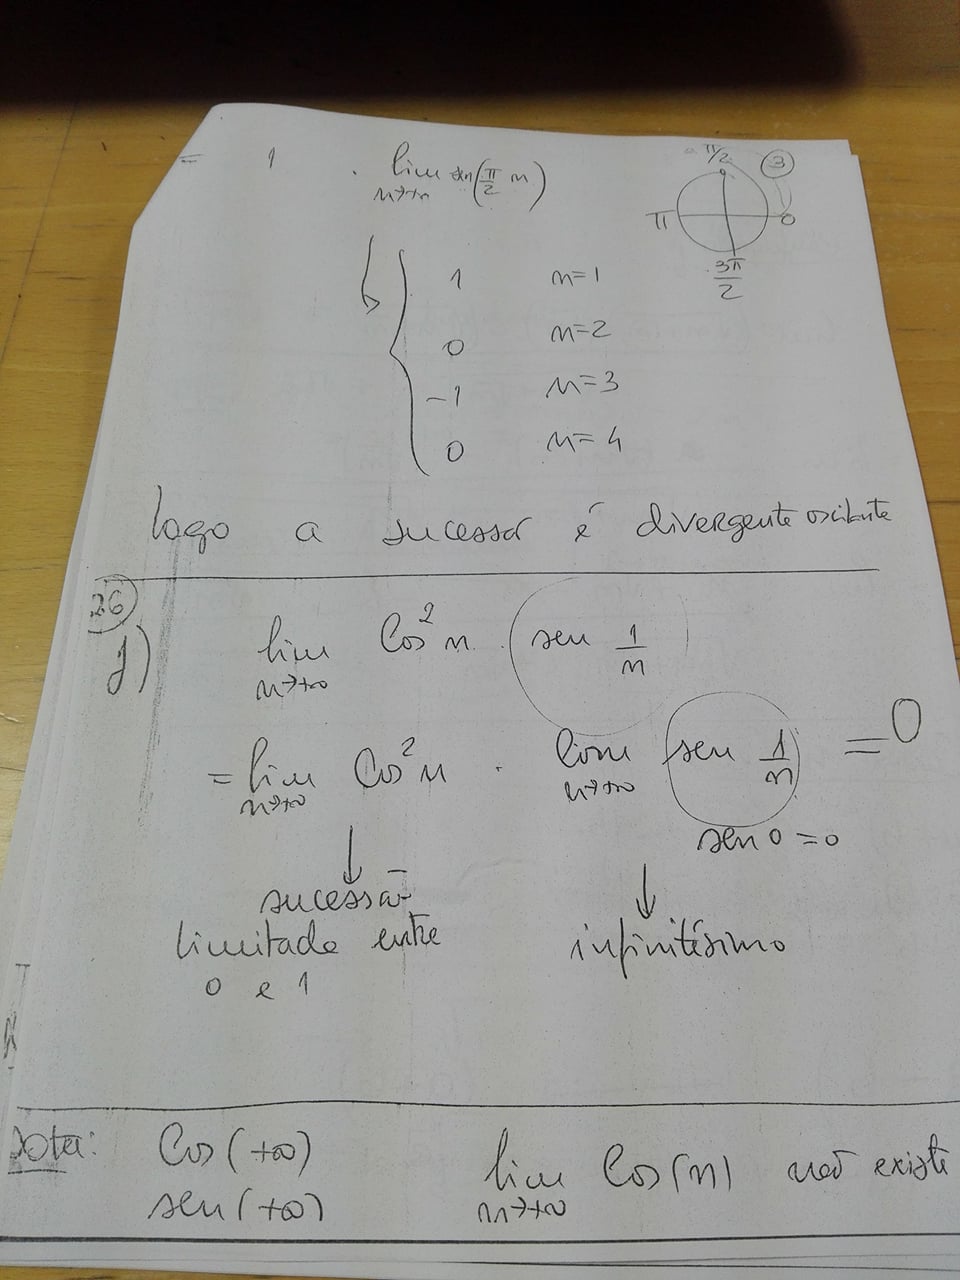 1 lim sen(π/2 n) π/2 3
n→+∞
π 0
3π/2
1 n=1
0 n=2
-1 n=3
0 n=4
logo a sucessão é divergente oscilante
26
j) lim cos² n . sen 1/n
n→+∞
= lim cos² n . lim sen 1/n = 0
n→+∞ n→+∞
sen 0 = 0
↓ ↓
sucessão
limitada entre infinitésimo
0 e 1
Nota: Cos(+∞) lim Cos(n) não existe
sen(+∞) n→+∞